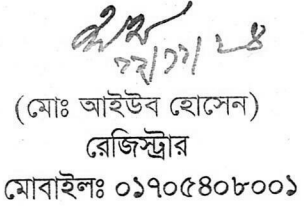 (মোঃ আইউব হোসেন)
রেজিস্ট্রার
মোবাইলঃ ০১৭০৫৪০৮০০১